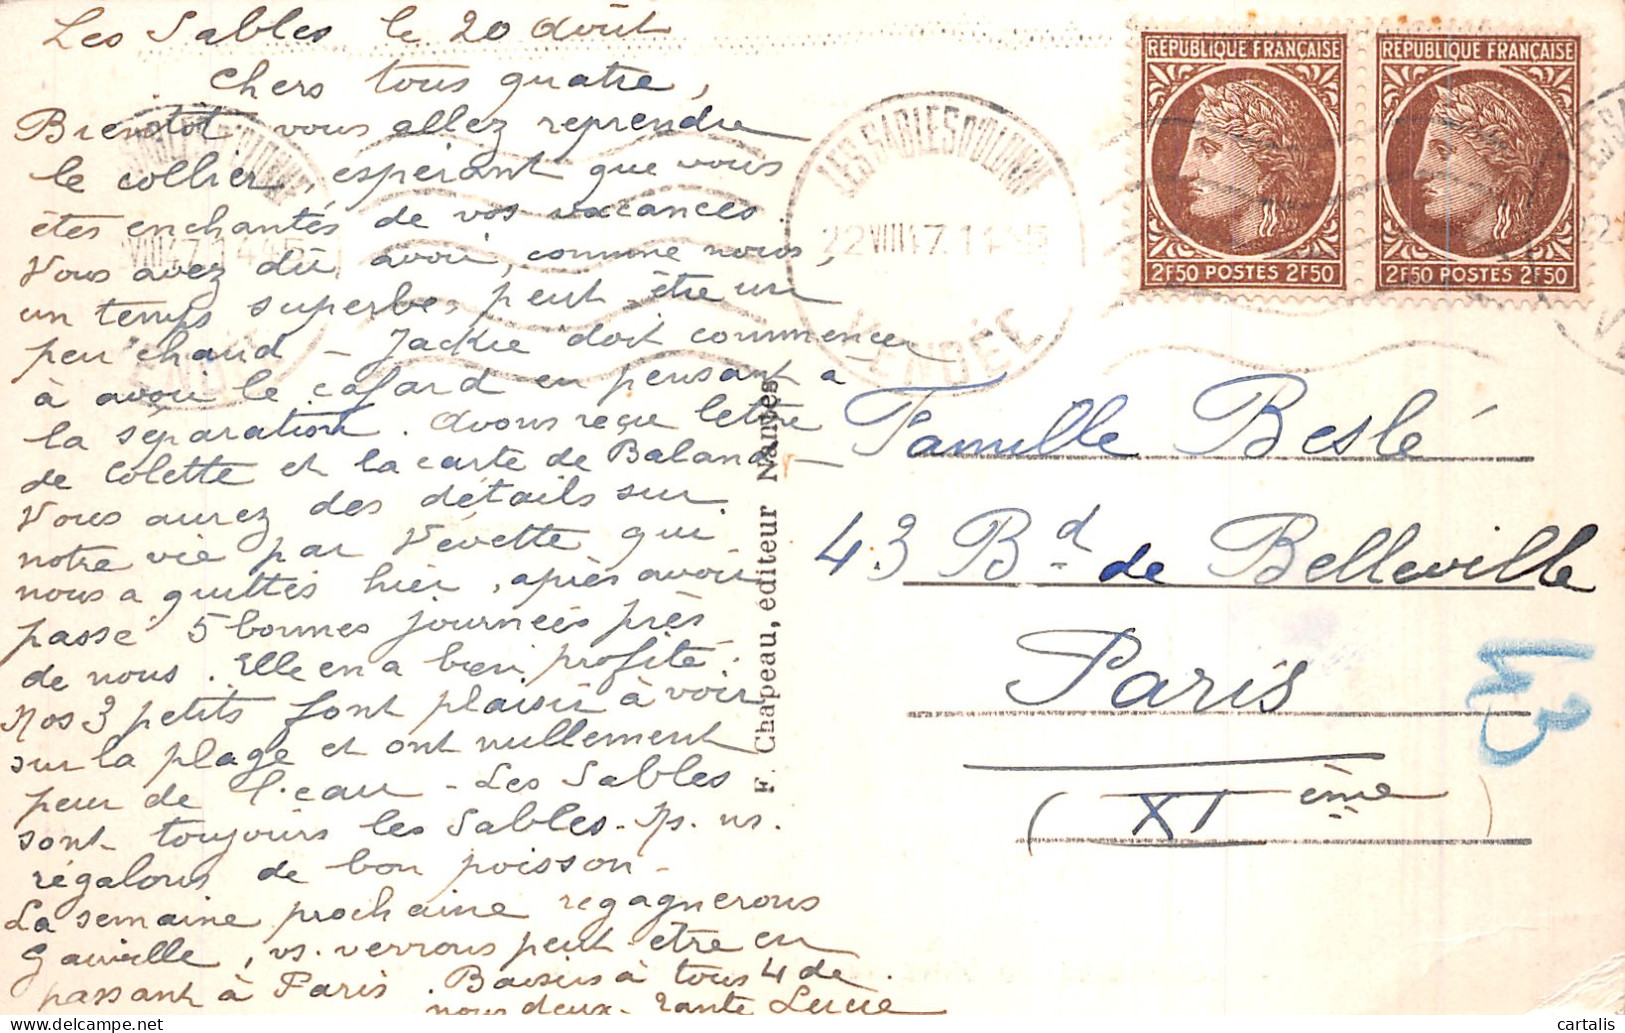 Les Sables le 20 août
Chers tous quatre,
Bientôt vous allez reprendre
le collier, espérant que vous
êtes enchantés de vos vacances.
Vous avez dû avoir, comme nous,
un temps superbe, peut-être un
peu chaud - Jackie doit commencer
à avoir le cafard en pensant à
la séparation. Avons reçu lettre
de Colette et la carte de Baland -
Vous aurez des détails sur
notre vie par Vévette qui
nous a quittés hier, après avoir
passé 5 bonnes journées près
de nous. Elle en a bien profité.
Nos 3 petits font plaisir à voir
sur la plage et ont nullement
peur de l'eau - Les Sables
sont toujours les Sables. Ns. ns.
régalons de bon poisson -
La semaine prochaine regagnerons
, vs. verrons peut-être en
passant à Paris. Baisers à tous 4 de
nous deux - Tante Lucie
F. Chapeau, éditeur Nantes
REPUBLIQUE FRANÇAISE
2F50 POSTES 2F50
REPUBLIQUE FRANÇAISE
2F50 POSTES 2F50
LES SABLES D'OLONNE
22 VIII 47. 14 45
VENDÉE
Famille Beslé
43 Bd de Belleville
Paris
(XIème)
43
cartalis